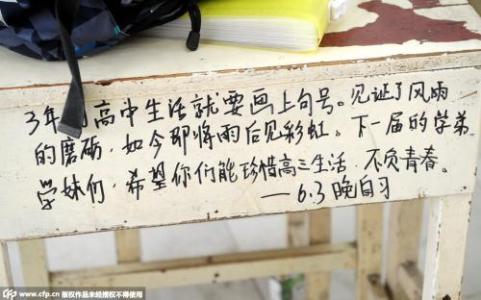 3年 高中生活就要画上句号。见证了风雨
的磨砺，如今即将雨后见彩虹。下一届的学弟
学妹们，希望你们能珍惜高三生活，不负青春。
——6.3晚自习
www.cfp.cn 版权作品未经授权不得使用